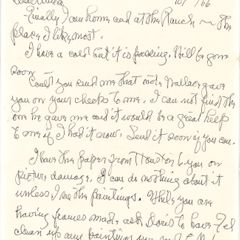 Finally I am home and at the Ranch — the
place I like most.
I have a cold but it is passing. Will be gone
soon.
Could you send me that card Wallace gave
you on your checks to me. I can not find the
one he gave me and it would be a great help
to me if I had it now. Send it soon if you can.
I have the paper from to you on
picture damage. I can do nothing about it
unless I see the paintings. While you are
having frames made, ask to have
clean up any paintings